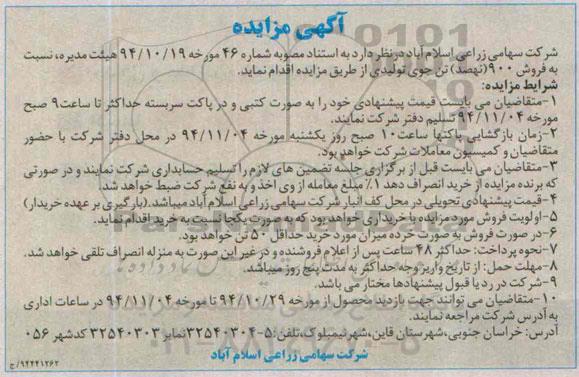 آگهی مزایده
شرکت سهامی زراعی اسلام آباد در نظر دارد به استناد مصوبه شماره ۴۶ مورخه ۹۴/۱۰/۱۹ هیئت مدیره، نسبت
به فروش ۹۰۰ (نهصد) تن جوی تولیدی از طریق مزایده اقدام نماید.
شرایط مزایده:
۱-متقاضیان می بایست قیمت پیشنهادی خود را به صورت کتبی و در پاکت سربسته حداکثر تا ساعت ۹ صبح
مورخه ۹۴/۱۱/۰۴ تسلیم دفتر شرکت نمایند.
۲-زمان بازگشایی پاکتها ساعت ۱۰ صبح روز یکشنبه مورخه ۹۴/۱۱/۰۴ در محل دفتر شرکت با حضور
متقاضیان و کمیسیون معاملات شرکت خواهد بود.
۳-متقاضیان می بایست قبل از برگزاری جلسه تضمین های لازم را تسلیم حسابداری شرکت نمایند و در صورتی
که برنده مزایده از خرید انصراف دهد ۱٪ مبلغ معامله از وی اخذ و به نفع شرکت ضبط خواهد شد.
۴-قیمت پیشنهادی تحویلی در محل کف انبار شرکت سهامی زراعی اسلام آباد میباشد.(بارگیری بر عهده خریدار)
۵-اولویت فروش مورد مزایده با خریداری خواهد بود که به صورت یکجا نسبت به خرید اقدام نماید.
۶-در صورت فروش به صورت خرده میزان مورد خرید حداقل ۵۰ تن خواهد بود.
۷-نحوه پرداخت: حداکثر ۴۸ ساعت پس از اعلام فروشنده و در غیر این صورت به منزله انصراف تلقی خواهد شد.
۸-مهلت حمل: از تاریخ واریز وجه حداکثر به مدت پنج روز میباشد.
۹-شرکت در رد یا قبول پیشنهادها مختار می باشد.
۱۰-متقاضیان می توانند جهت بازدید محصول از مورخه ۹۴/۱۰/۲۹ تا مورخه ۹۴/۱۱/۰۴ در ساعات اداری
به آدرس شرکت مراجعه نمایند.
آدرس: خراسان جنوبی، شهرستان قاین، شهر نیمبلوک، تلفن: ۵-۳۲۵۴۰۳۰۴ نمابر ۳۲۵۴۰۳۰۳ کد شهر ۰۵۶
شرکت سهامی زراعی اسلام آباد
۹۴۴۴۱۲۶۲/ج